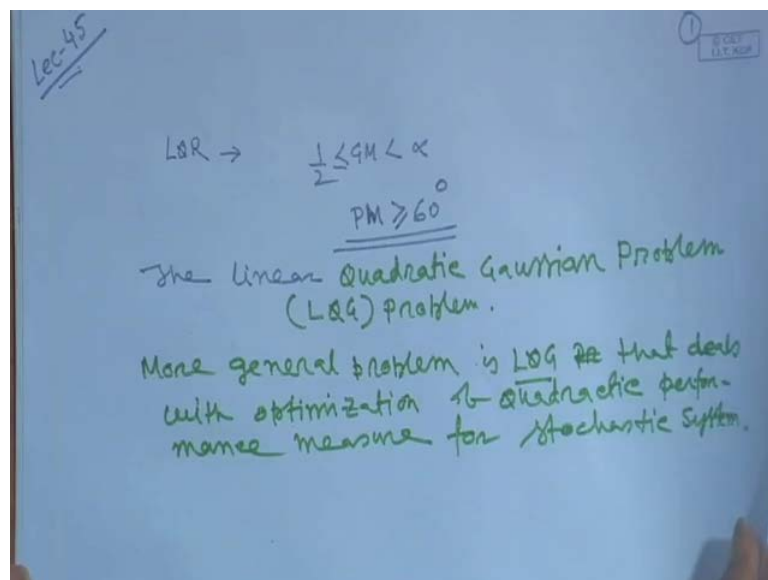 Lec-45
1
LQR → 1/2 ≤ GM < ∝
PM ≥ 60°
The linear Quadratic Gaussian Problem
(LQG) problem.
More general problem is LQG that deals
with optimization of quadractic perfor-
mance measure for stochastic system.